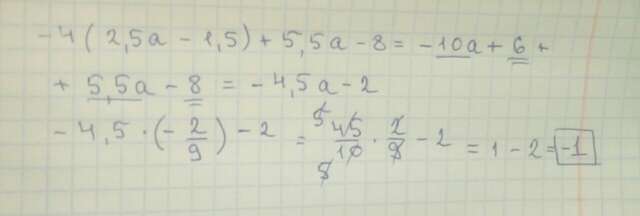 -4(2,5a - 1,5) + 5,5a - 8 = -10a + 6 +
+ 5,5a - 8 = -4,5a - 2
-4,5 · (-2/9) - 2 = 45/10 · 2/9 - 2 = 1 - 2 = -1